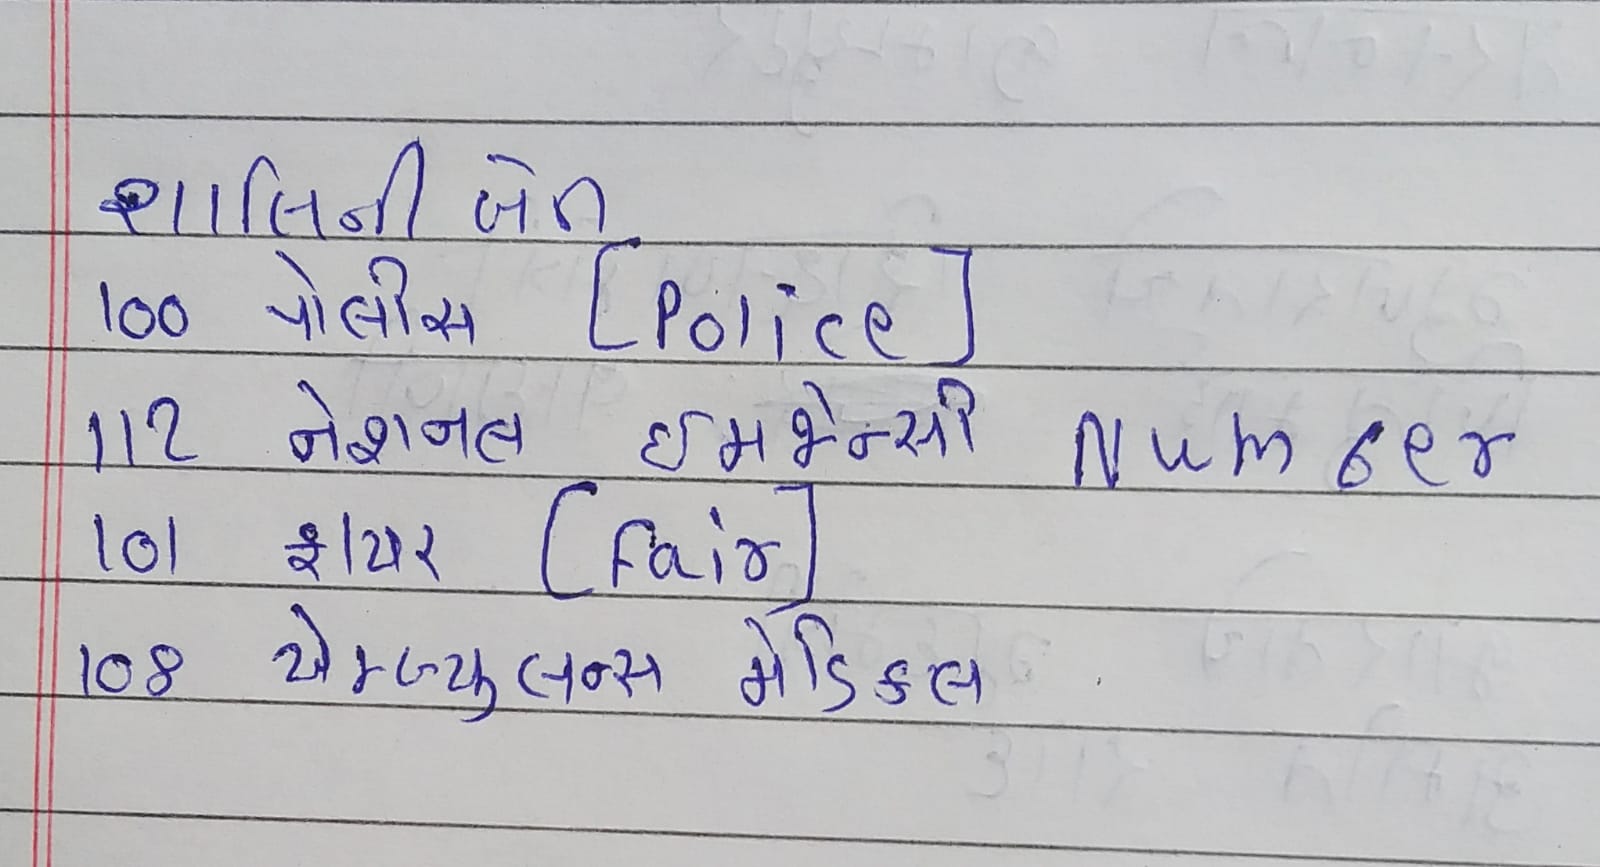 શાલિની બેન
100 પોલીસ [Police]
112 નેશનલ ઈમર્જેન્સી Number
101 ફાયર [Fair]
108 એમ્બ્યુલન્સ મેડિકલ